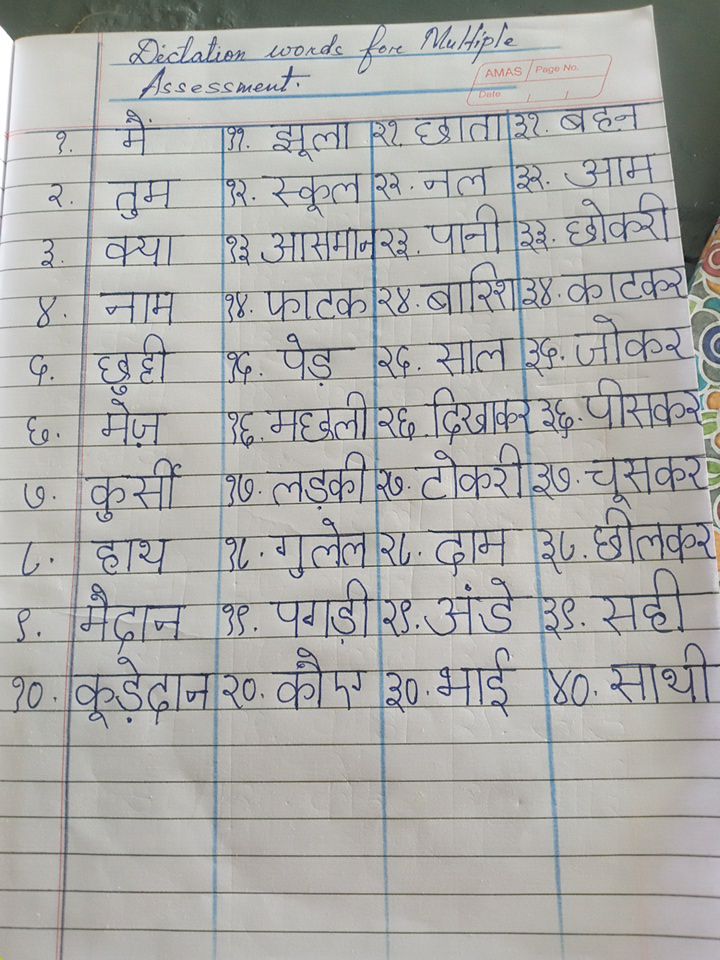 Dictation words for Multiple
Assessment.
AMAS Page No.
Date / /
१. मैं ११. झूला २१. छाता ३१. बहन
२. तुम १२. स्कूल २२. नल ३२. आम
३. क्या १३ आसमान २३. पानी ३३. छोकरी
४. नाम १४. फाटक २४. बारिश ३४. काटकर
५. छुट्टी १५. पेड़ २५. साल ३५. जोकर
६. मेज़ १६. मछली २६. दिखाकर ३६. पीसकर
७. कुर्सी १७. लड़की २७. टोकरी ३७. चूसकर
८. हाथ १८. गुलेल २८. दाम ३८. छीलकर
९. मैदान १९. पगड़ी २९. अंडे ३९. सही
१०. कूड़ेदान २०. कौए ३०. भाई ४०. साथी